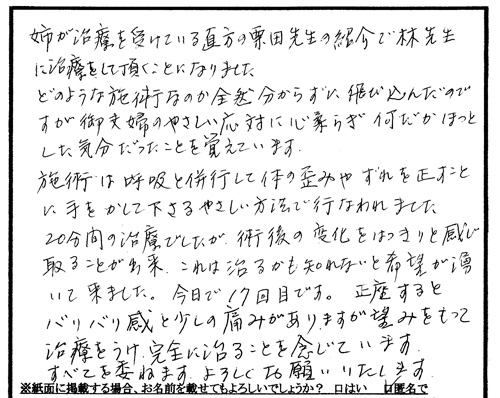 姉が治療を受けている直方の栗田先生の紹介で林先生
に治療をして頂くことになりました
どのような施術なのか全然分からずに飛び込んだので
すが御夫婦のやさしい応対に心柔らぎ何だかほっと
した気分だったことを覚えています.
施術は呼吸と併行して体の歪みやずれを正すこと
に手をかして下さるやさしい方法で行なわれました
20分間の治療でしたが、術後の変化をはっきりと感じ
取ることが出来、これは治るかも知れないと希望が湧
いて来ました。今日で17回目です。正座すると
バリバリ感と少しの痛みがありますが望みをもって
治療をうけ、完全に治ることを念じています.
すべてを委ねます.よろしくお願いいたします.
※紙面に掲載する場合、お名前を載せてもよろしいでしょうか? 口はい 口匿名で